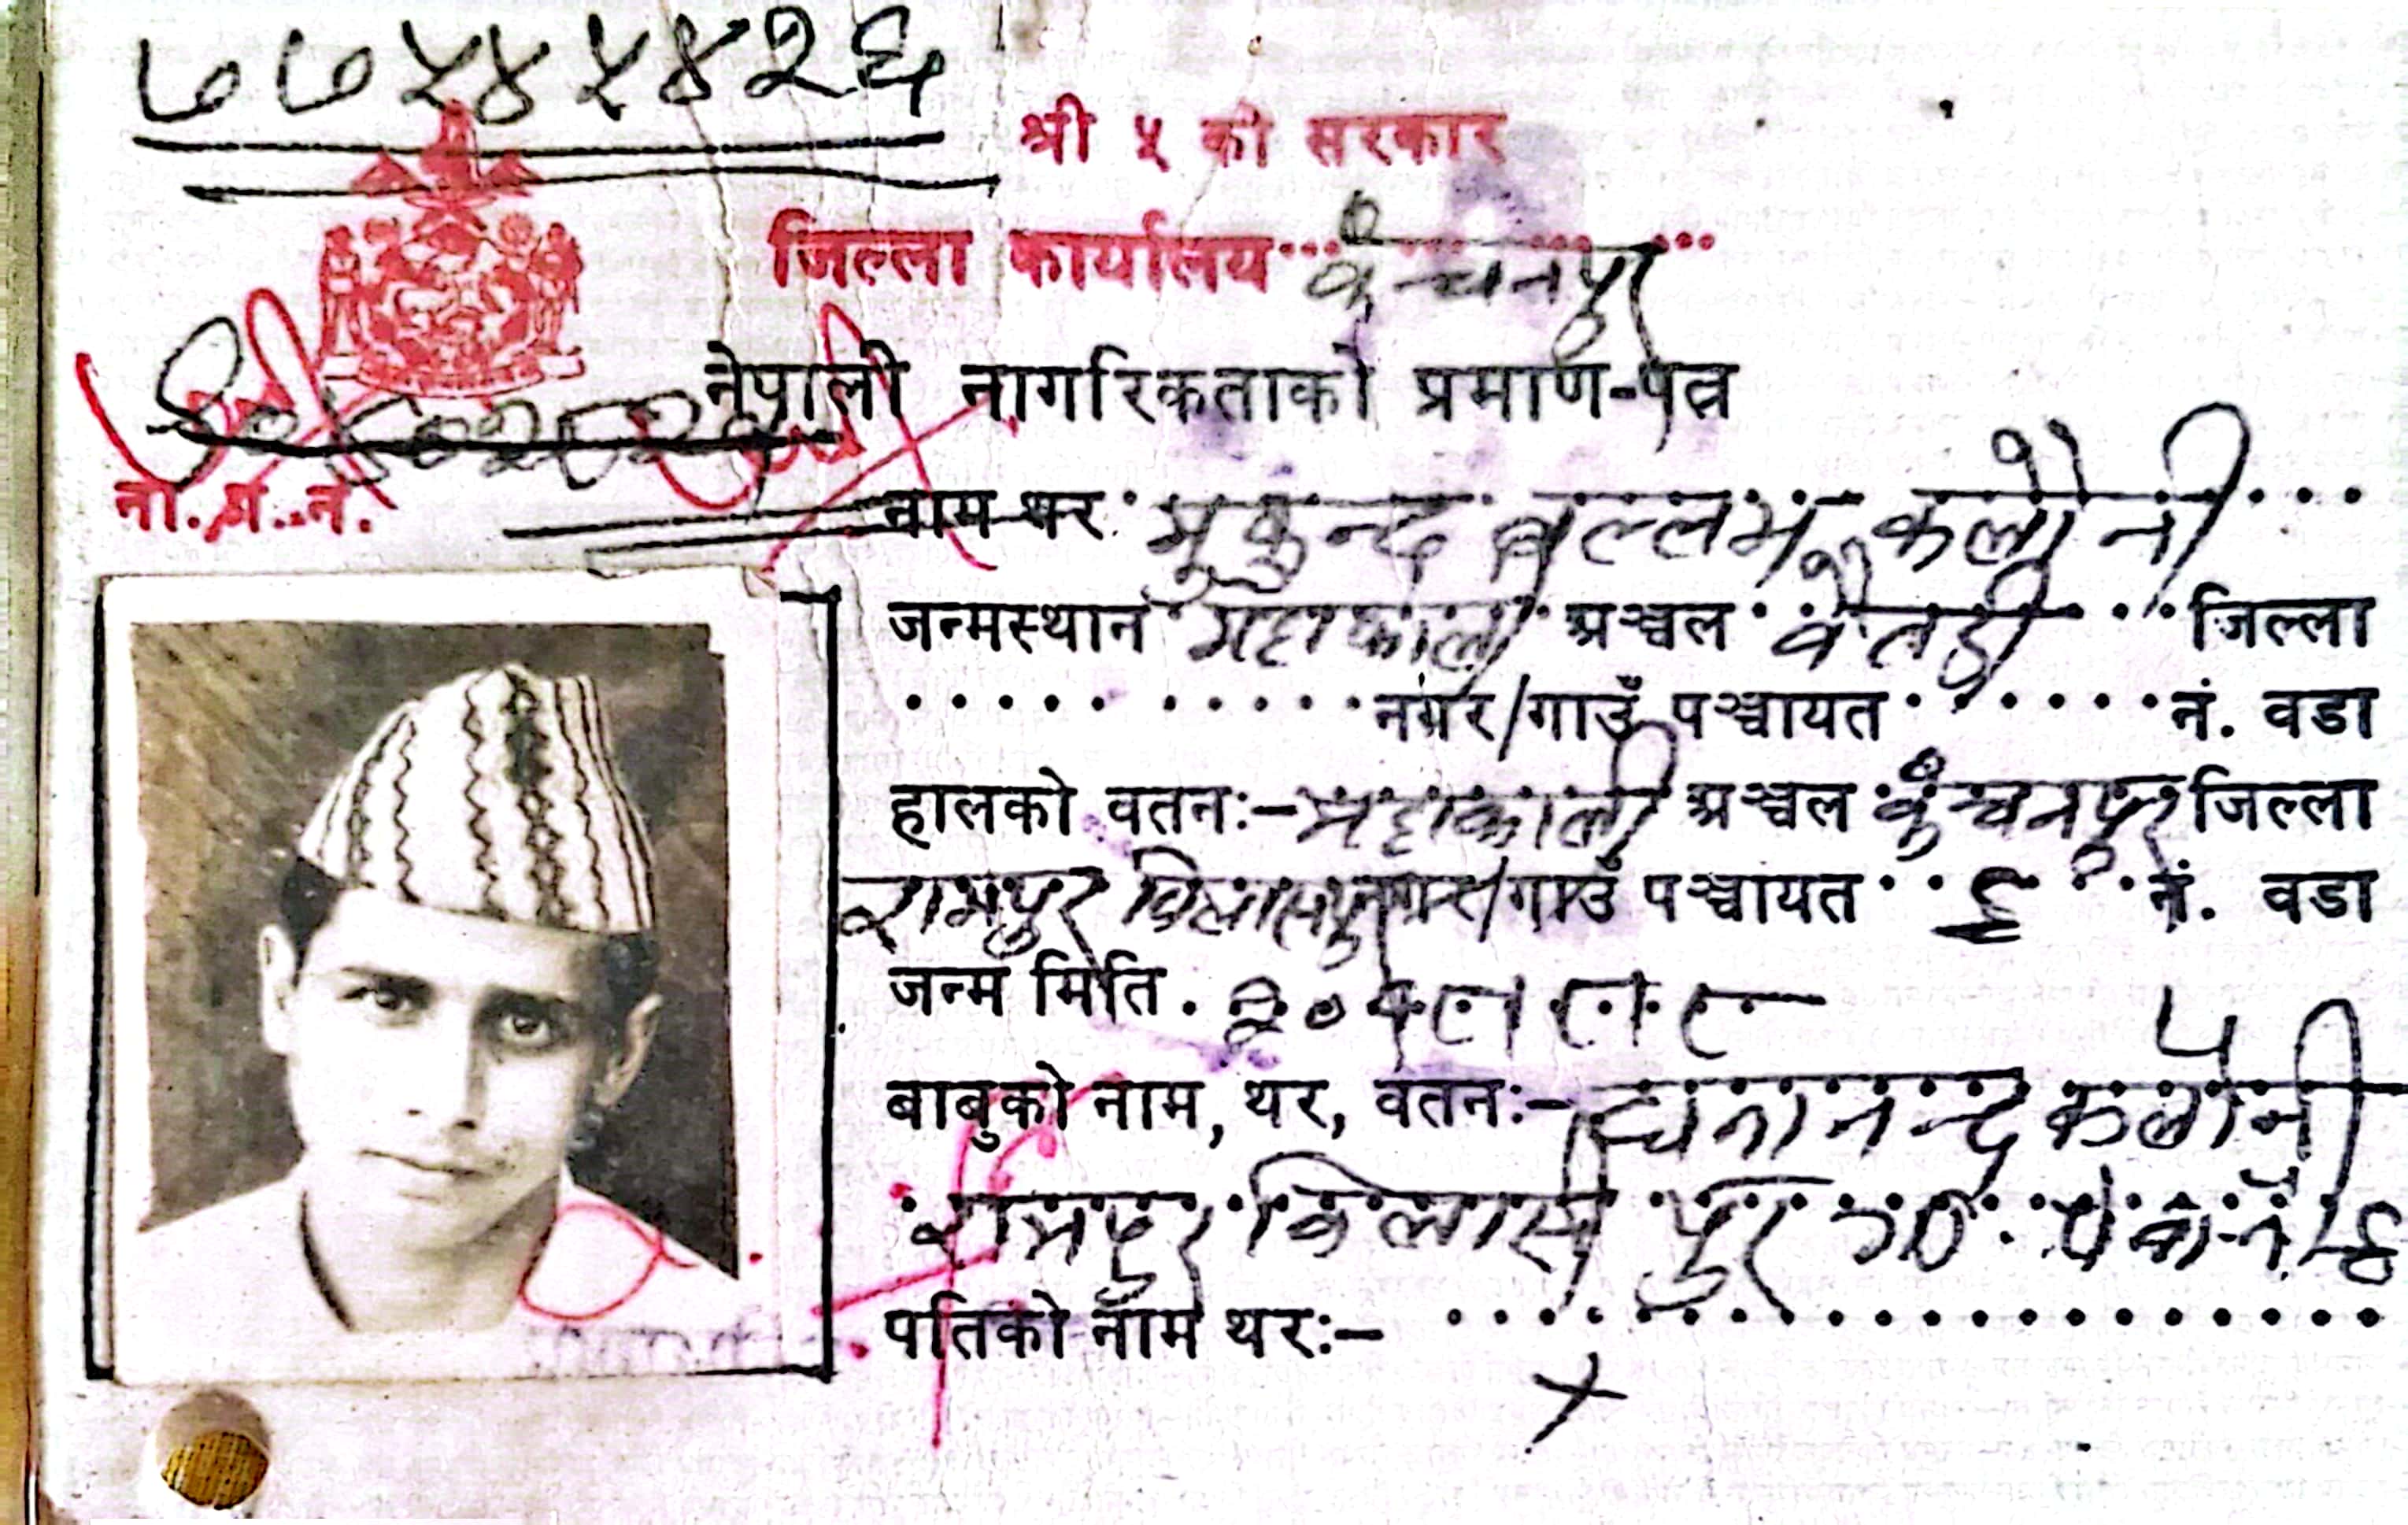 ७७५४५४२६
श्री ५ को सरकार
जिल्ला कार्यालय कंचनपुर
नेपाली नागरिकताको प्रमाण-पत्र
ना. प्र. नं.
नाम थर मुकुन्द बल्लभ कलौनी
जन्मस्थान महाकाली अञ्चल बैतडी जिल्ला
नगर/गाउँ पञ्चायत नं. वडा
हालको वतनः- महाकाली अञ्चल कंचनपुर जिल्ला
रामपुर विलासपुर नगर/गाउँ पञ्चायत ६ नं. वडा
जन्म मिति
बाबुको नाम, थर, वतनः- कलौनी
रामपुर विलासपुर गा. पं. वा. नं. ६
पतिको नाम थरः-